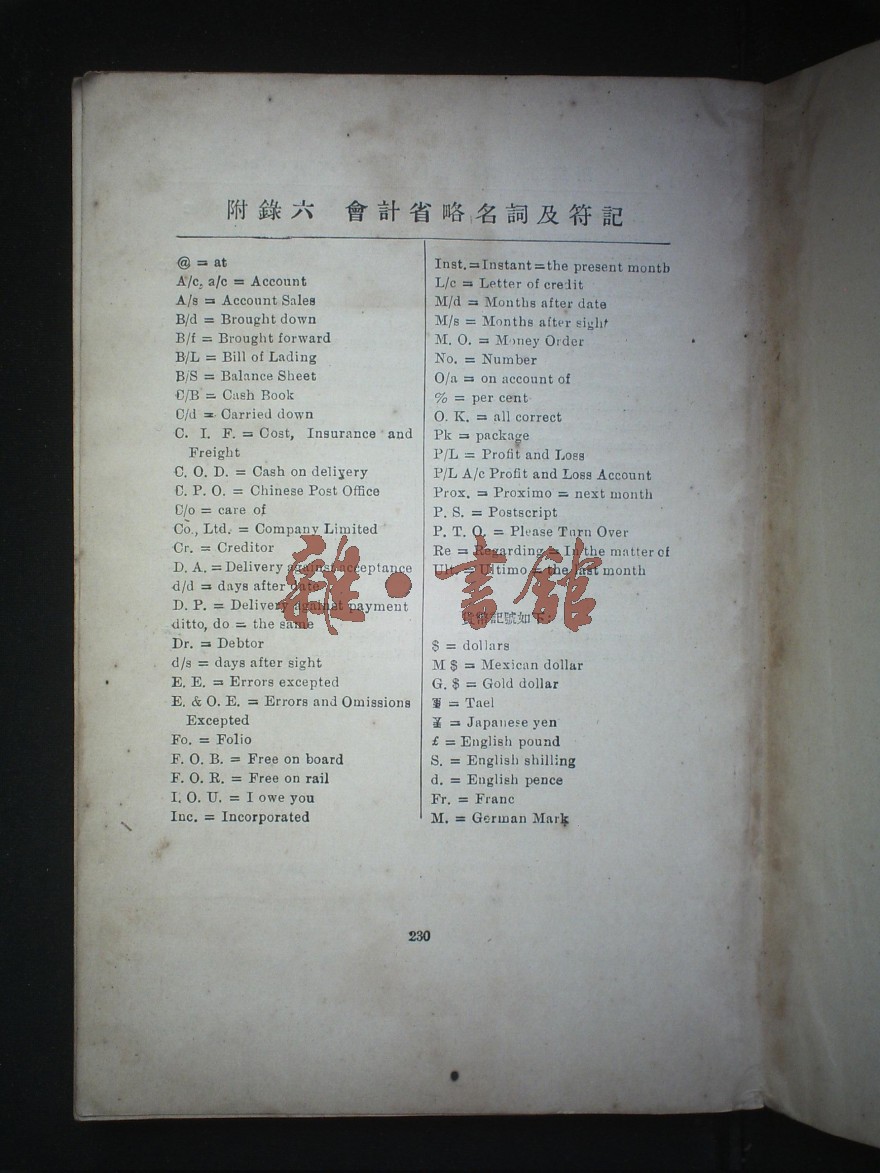 附錄六 會計省略名詞及符記
@ = at
A/c, a/c = Account
A/s = Account Sales
B/d = Brought down
B/f = Brought forward
B/L = Bill of Lading
B/S = Balance Sheet
C/B = Cash Book
C/d = Carried down
C. I. F. = Cost, Insurance and
Freight
C. O. D. = Cash on delivery
C. P. O. = Chinese Post Office
C/o = care of
Co., Ltd. = Company Limited
Cr. = Creditor
D. A. = Delivery against acceptance
d/d = days after date
D. P. = Delivery against payment
ditto, do = the same
Dr. = Debtor
d/s = days after sight
E. E. = Errors excepted
E. & O. E. = Errors and Omissions
Excepted
Fo. = Folio
F. O. B. = Free on board
F. O. R. = Free on rail
I. O. U. = I owe you
Inc. = Incorporated
Inst. = Instant = the present month
L/c = Letter of credit
M/d = Months after date
M/s = Months after sight
M. O. = Money Order
No. = Number
O/a = on account of
% = per cent
O. K. = all correct
Pk = package
P/L = Profit and Loss
P/L A/c Profit and Loss Account
Prox. = Proximo = next month
P. S. = Postscript
P. T. O. = Please Turn Over
Re = Regarding = In the matter of
Ult. = Ultimo = the last month
貨幣記號如下:
$ = dollars
M $ = Mexican dollar
G. $ = Gold dollar
= Tael
¥ = Japanese yen
£ = English pound
S. = English shilling
d. = English pence
Fr. = Franc
M. = German Mark
230
雜·書館